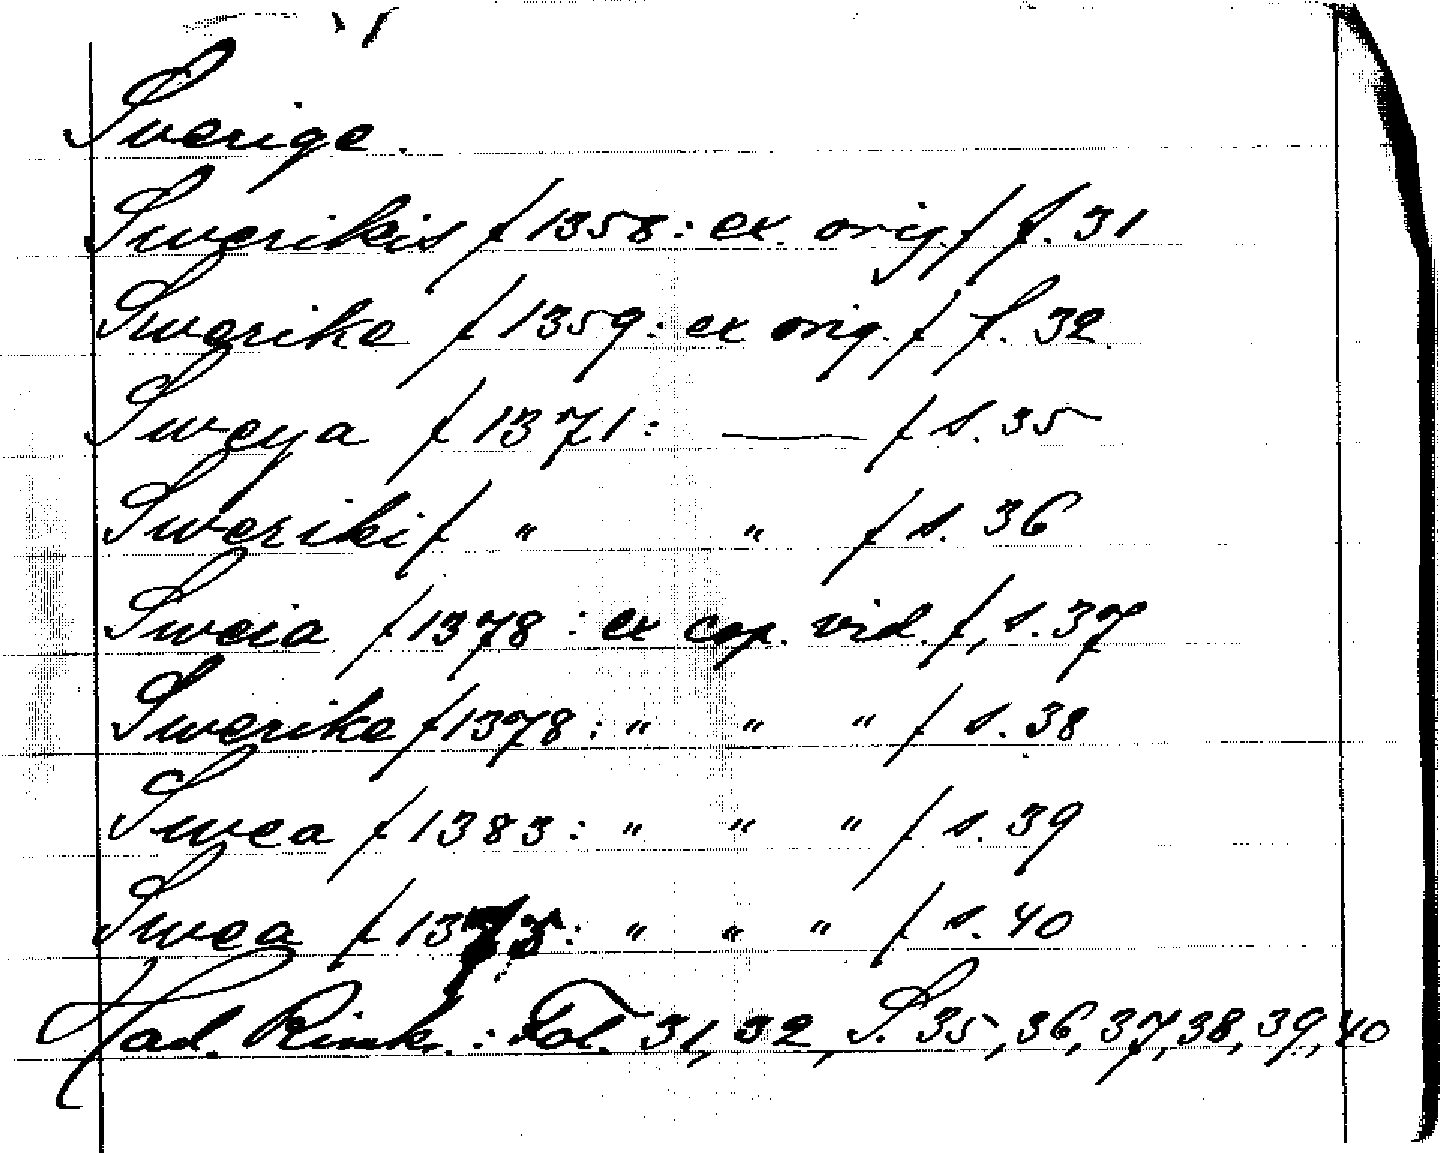 Sverige.
Swerikis / 1358: ex. orig. / f. 31
Swerike / 1359: ex orig. / f. 32
Sweya / 1371: —— / s. 35
Sweriki / " " / s. 36
Sweia / 1378: ex cop. vid. /, s. 37
Swerike / 1378: " " " / s. 38
Swea / 1383: " " " / s. 39
Swea / : " " " / s. 40
Had. Rimk.: Fol. 31, 32, S. 35, 36, 37, 38, 39, 40